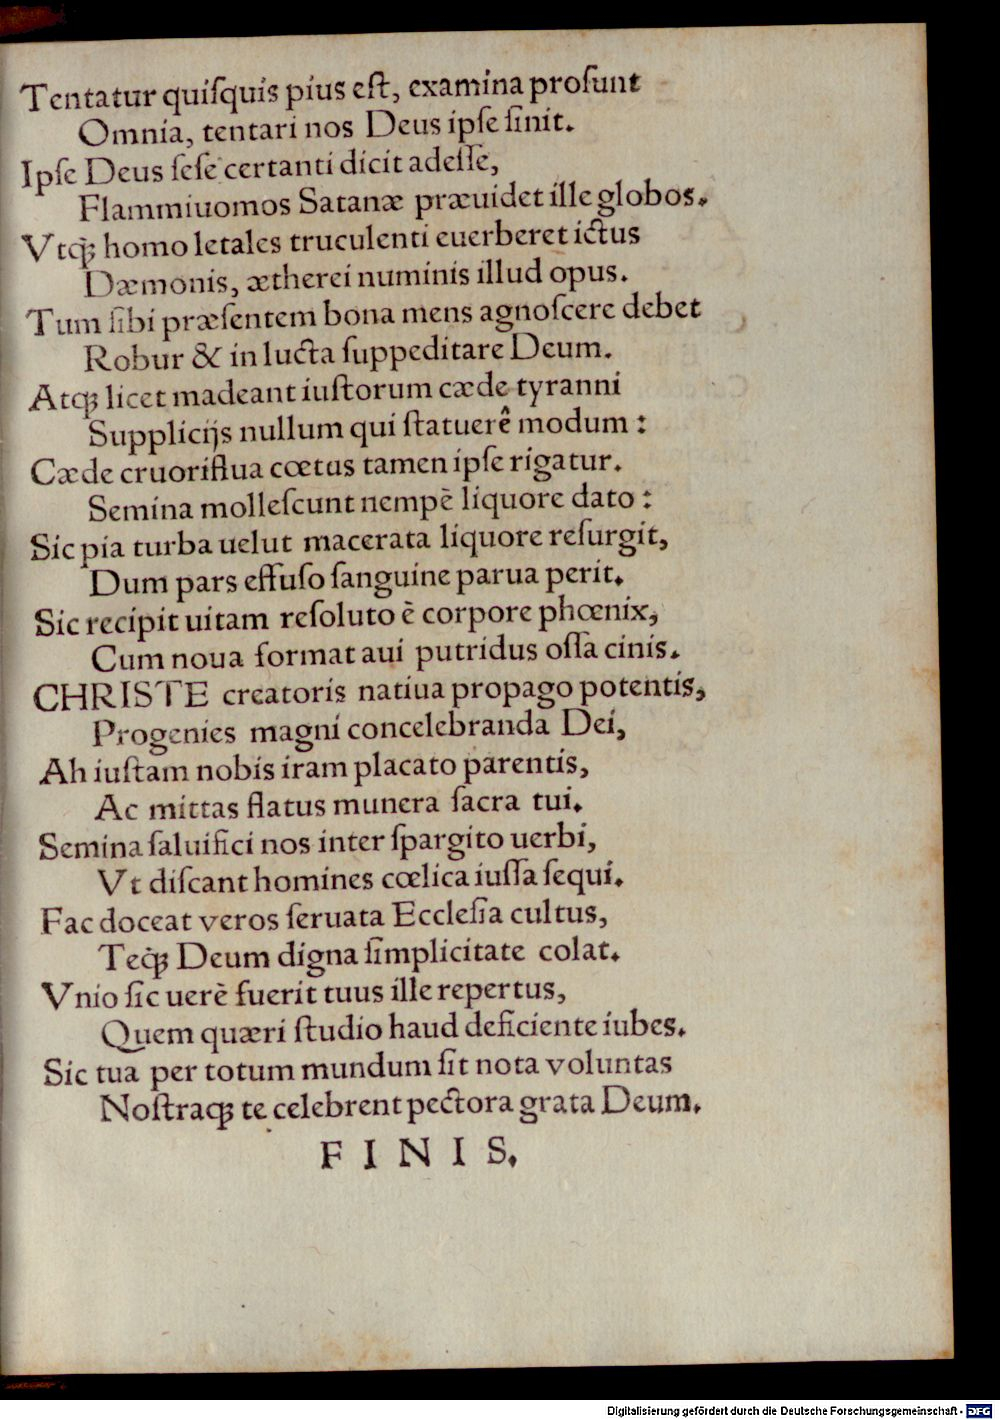 Tentatur quiſquis pius eſt, examina proſunt
Omnia, tentari nos Deus ipſe ſinit.
Ipſe Deus ſeſe certanti dicit adeſſe,
Flammiuomos Satanæ præuidet ille globos.
Vtqꝫ homo letales truculenti euerberet ictus
Dæmonis, ætherei numinis illud opus.
Tum ſibi præſentem bona mens agnoſcere debet
Robur & in lucta ſuppeditare Deum.
Atqꝫ licet madeant iuſtorum cæde tyranni
Supplicijs nullum qui ſtatuerê modum :
Cæde cruoriflua cœtus tamen ipſe rigatur.
Semina molleſcunt nempè liquore dato :
Sic pia turba uelut macerata liquore reſurgit,
Dum pars effuſo ſanguine parua perit.
Sic recipit uitam reſoluto è corpore phœnix,
Cum noua format aui putridus oſſa cinis.
CHRISTE creatoris natiua propago potentis,
Progenies magni concelebranda Dei,
Ah iuſtam nobis iram placato parentis,
Ac mittas flatus munera ſacra tui.
Semina ſaluifici nos inter ſpargito uerbi,
Vt diſcant homines cœlica iuſſa ſequi.
Fac doceat veros ſeruata Eccleſia cultus,
Teq́ꝫ Deum digna ſimplicitate colat.
Vnio ſic uerè fuerit tuus ille repertus,
Quem quæri ſtudio haud deficiente iubes.
Sic tua per totum mundum ſit nota voluntas
Noſtraqꝫ te celebrent pectora grata Deum.
F I N I S.
Digitalisierung gefördert durch die Deutsche Forschungsgemeinschaft - DFG